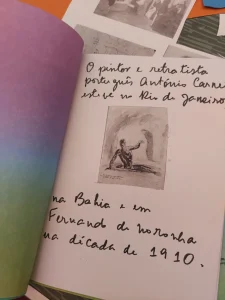 O pintor e retratista
português António Carne
esteve no Rio de Janeiro
na Bahia e em
Fernando de noronha
na década de 1910.